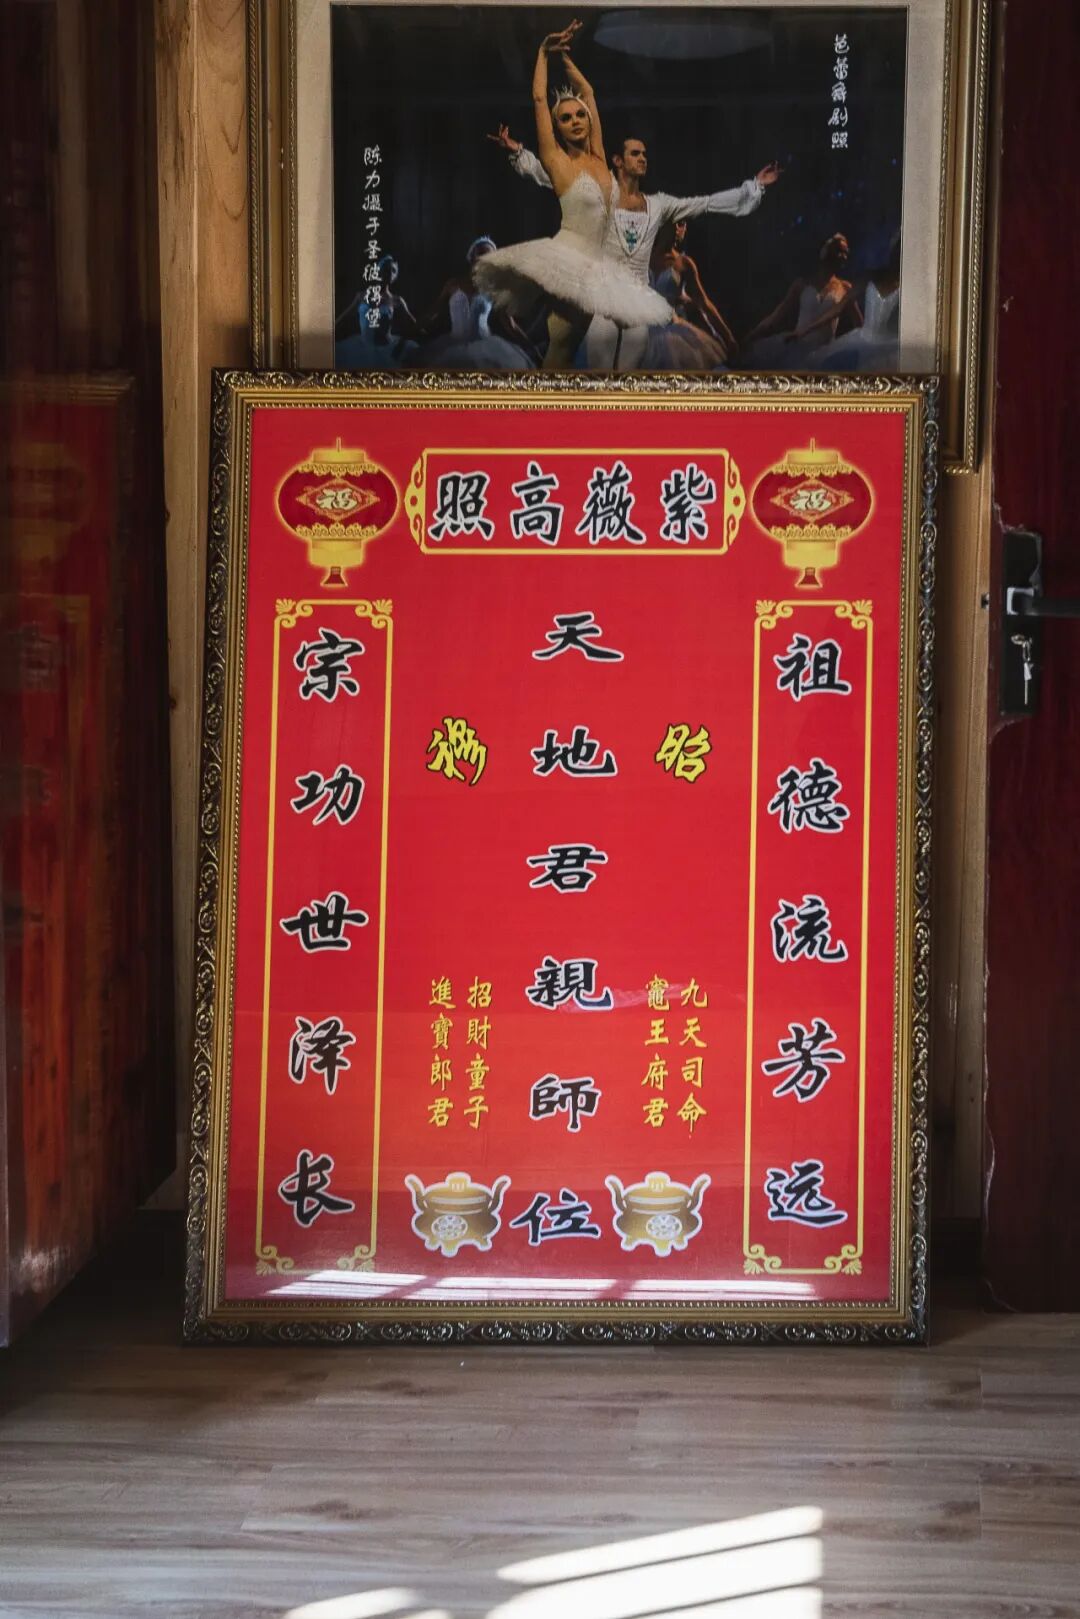 芭蕾舞剧照
陈力摄于圣彼得堡
紫薇高照
福
福
祖德流芳远
昭
九天司命
竈王府君
天地君親師位
穆
招財童子
進寶郎君
宗功世泽长